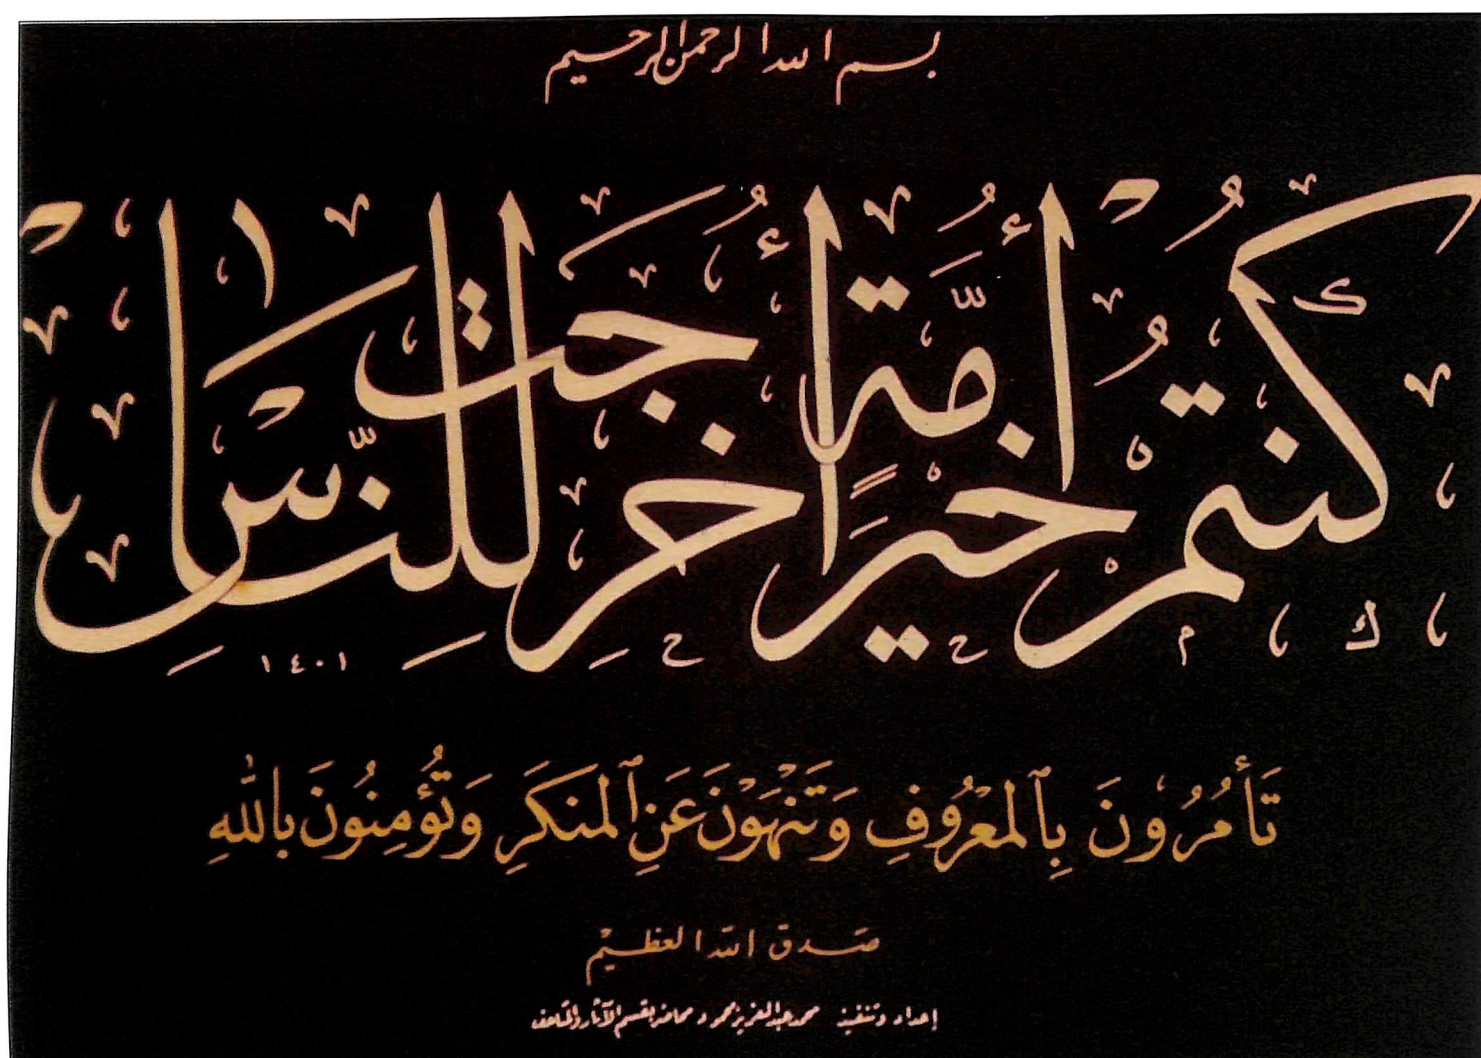 بسم الله الرحمن الرحيم
كنتم خير أمة أخرجت للناس
١٤٠١
تَأمُرُونَ بِٱلمَعْرُوفِ وَتَنْهَوْنَ عَنِ ٱلمنكَرِ وَتُؤمِنُونَ بِاللهِ
صدق الله العظيم
إعداد وتنفيذ محمد عبد العزيز محمود بقسم الآثار والمتاحف